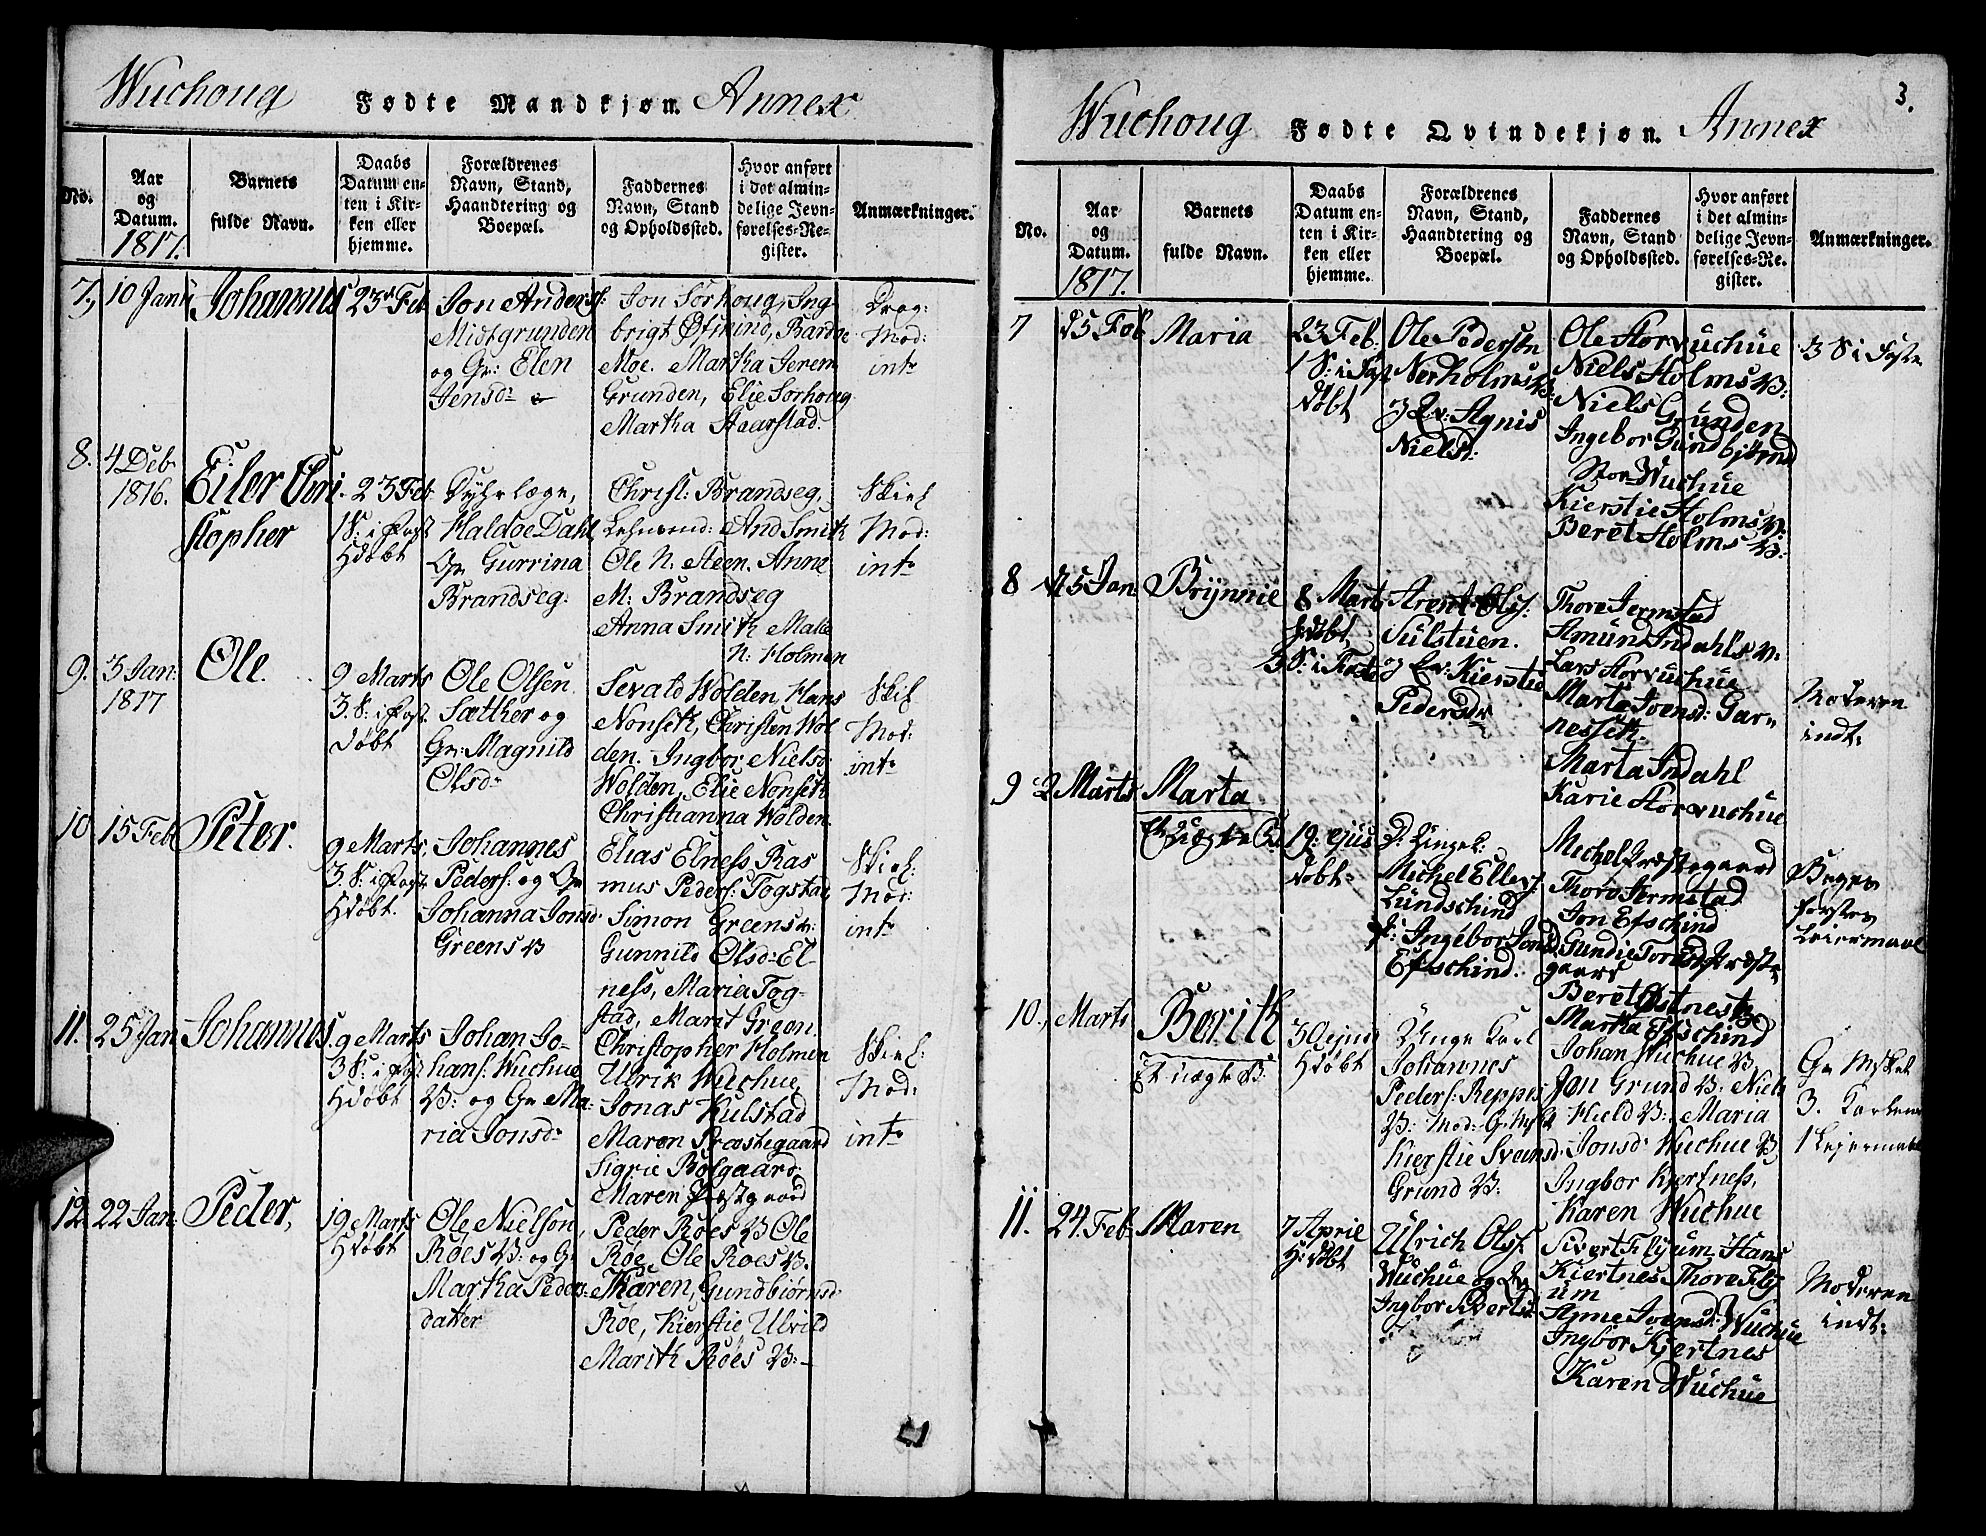 Wuchoug Fødte Mandkjøn. Annex
No.
Aar og Datum. 1817.
Barnets fulde Navn.
Daabs Datum enten i Kirken eller hjemme.
Forældrenes Navn, Stand, Haandtering og Boepæl.
Faddernes Navn, Stand og Opholdssted.
Hvor anført i det almindelige Jevnførelses-Register.
Anmærkninger.
7, 10 Jan Johannes 23 Feb
Jon Anders:
Midtgrunden
og Gv: Elen
Jensd:
Jon Sørhoug, Ing-
brigt Østkind, Bardoe
Moe. Martha Jerem
Grunden, Elie Sorhoug
Martha Aearstad.
Drag:
Mod:
int
8. 4 Deb
1816.
Eiler Chri
stopher
23 Feb
1 S: i Fast
Hdøbt
Haldoe Dahl
Gv Gurrina
Brandseg.
Christ: Brandseg,
Lehnsmd: And Smith
Ole N. Steen. Anne
M: Brandseg
Anna Smith Male
N: Holmen
Skief
Mod:
int
9. 5 Jan:
1817
Ole.
9 Marts
3. S: i Fast
døbt
Ole Olsen
Sæther og
Gv: Magnild
Olsd:
Sevald Wolden, Hans
Nonseth, Christen Wol
den. Ingbor Nielsd:
Wolden, Elie Nonseth
Christianna Wolden
Skief
Mod:
int
10. 15 Feb Peter.
9 Marts,
3. S: i Fast
Hdøbt.
Johannes
Peders: og Gv
Johanna Jonsd:
Greens V
Elias Elness Ras
mus Peders: Togstad
Simon Greens v:
Gunnild Olsd: El-
ness, Maria Tog-
stad, Marit Green
Skief:
Mod:
int
11. 25 Jan Johannes.
9 Marts
3 S: i Fast
Hdøbt
Johan Jo-
hans: Wuchue
V: og Gv Ma:
ria Jonsd:
Christopher Holmen
Ulrik Wuchue,
Jonas Kulstad
Maren Præstegaard
Sigrie Bolgaard:
Maren Præstgaard
Skief:
Mod:
int
12. 22 Jan: Peder,
19 Marts
Hdøbt
Ole Nielson
Roes V: og G:
Martha Peders:
datter
Peder Roes V Ole
Roe, Ole Roes V.
Maren, Gundbiørnsd:
Roe, Kierstie, Ulrild
Marith Roes V:
Wuchoug Fødte Qvindekjøn. Annex
3.
No.
Aar og Datum. 1817.
Barnets fulde Navn.
Daabs Datum enten i Kirken eller hjemme.
Forældrenes Navn, Stand, Haandtering og Boepæl.
Faddernes Navn, Stand og Opholdssted.
Hvor anført i det almindelige Jevnførelses-Register.
Anmærkninger.
7 15 Feb Maria
23 Feb:
1 S: i Fast
døbt
Ole Pedersen
Nerholms V:
Agnis
Niels:
Ole Storvuchue
Niels Holms V:
Niels Grunden
Ingebor Gundbjørnd
Stor Wuchue
Kierstie Holms V:
Beret Holms V:
3 S i Faste
8 15 Jan Brynnie
8 Marts
hdøbt
3 S: i Faste
Arent Ols:
Sulstuen.
Kierstie
Pedersdr
Thore Jermstad
Amund Indahls v:
Lars Storvuchue
Marta Svensd: Gar-
nesseth.
Marta Indahl
Karie Storvuchue
Moderen
indt:
9 2 Marts Marta
Et uægte B.
19. ejus
døbt
Michel Ellevs:
Lundschind
P: Ingebor Jonsd
Efschind.
Michel Præstegaard
Thoro Jermstad
Jon Efschind
Gundie Tored: Præste
gaard
Beret Østnes
Martha Efschind
Begges
første
Leiermaal
10. Marts Berith
Et uægte B:
30 ejus
Hdøbt
Unge Karl
Johannes
Peders: Reppes
V: Mod:
Kierstie Svends:
Grund V:
Johan Wuchue V:
Jon Grund V: Niels
Hield V:, Maria
Jonsd Wuchue V
Ingbor Kjertness,
Karen Wuchue
3. Karlens
1 Lejermaal
11. 24 Feb. Maren
7 Aprie
Hdøbt
Ulrich Ols:
Wuchue og Gv
Ingbor Sivertsd
Sivert Flyum, Hans
Kiertnes Thore Fly
um
Anne Svensd: Wuchue
Ingbor Kjertnes
Karen Wuchue
Moderen
indt: